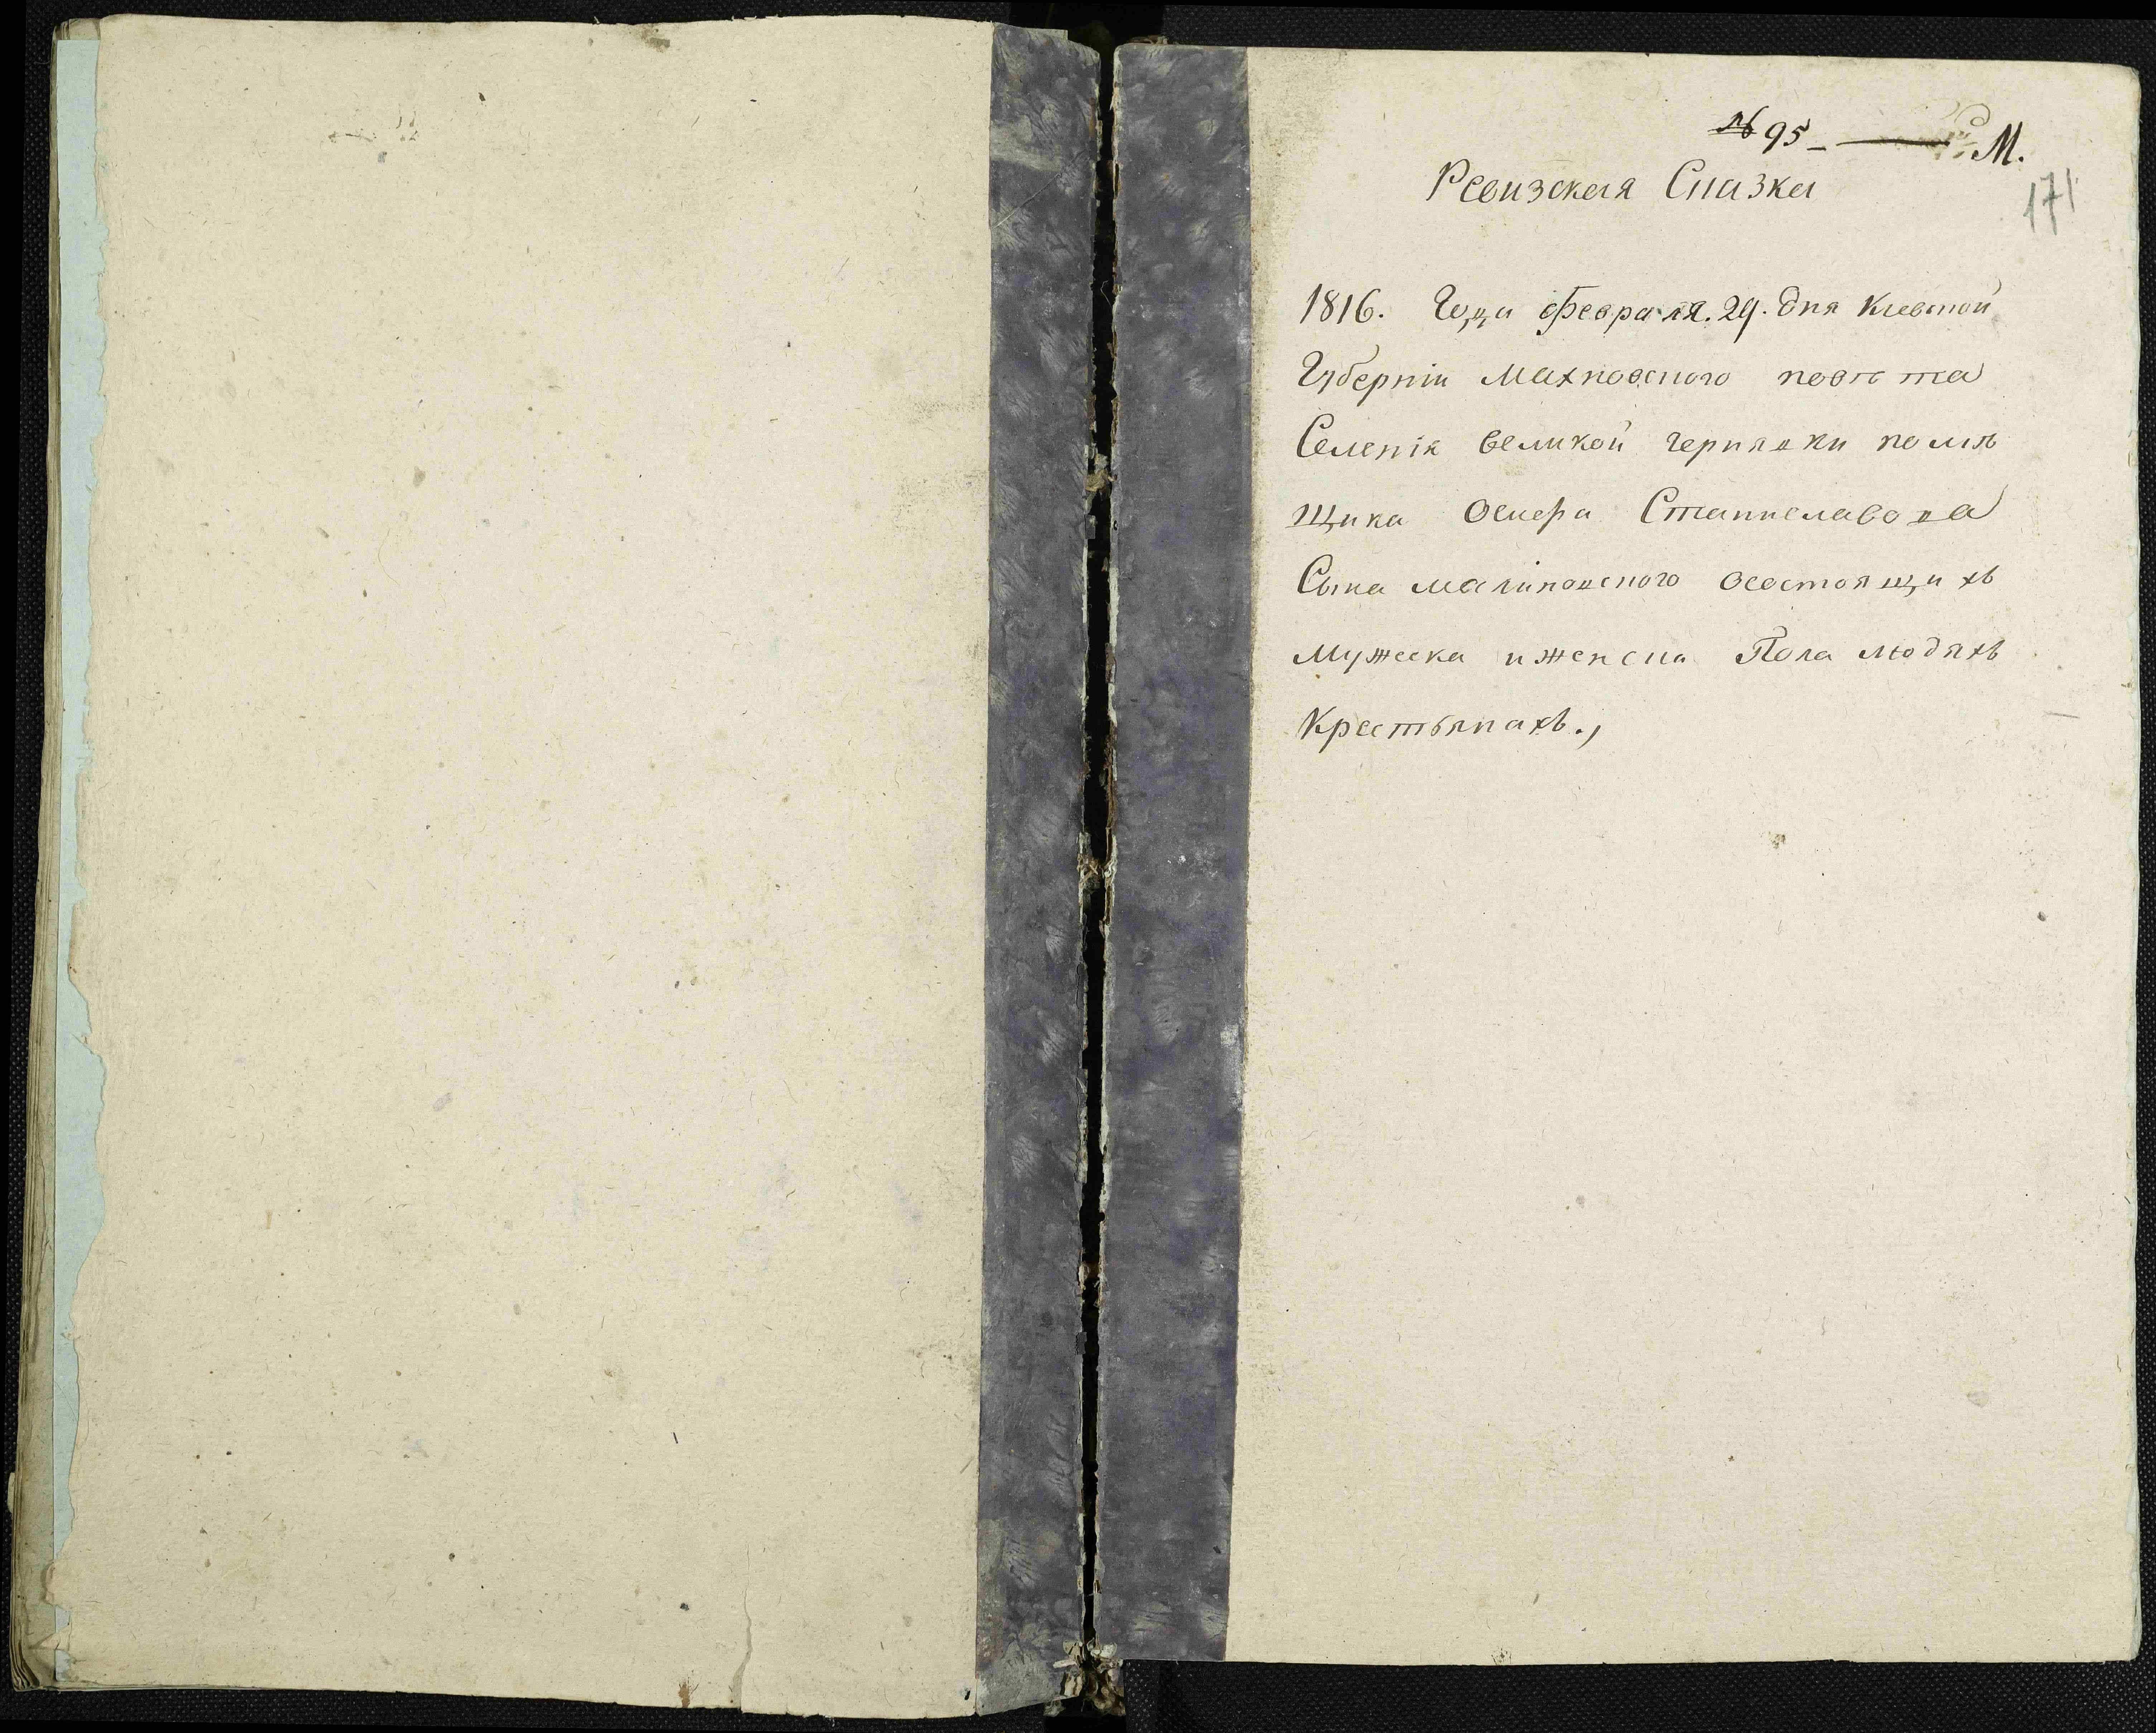 № 95 — М.
171
Ревизская Сказка
1816. Года Февраля. 29. дня Киевской
Губерніи Махновского повѣта
Селенія великой чернявки помѣ
щика Оскера Станиславова
Сына малиновского осостоящихъ
Мужеска иженска Пола людяхъ
Крестьянахъ.,